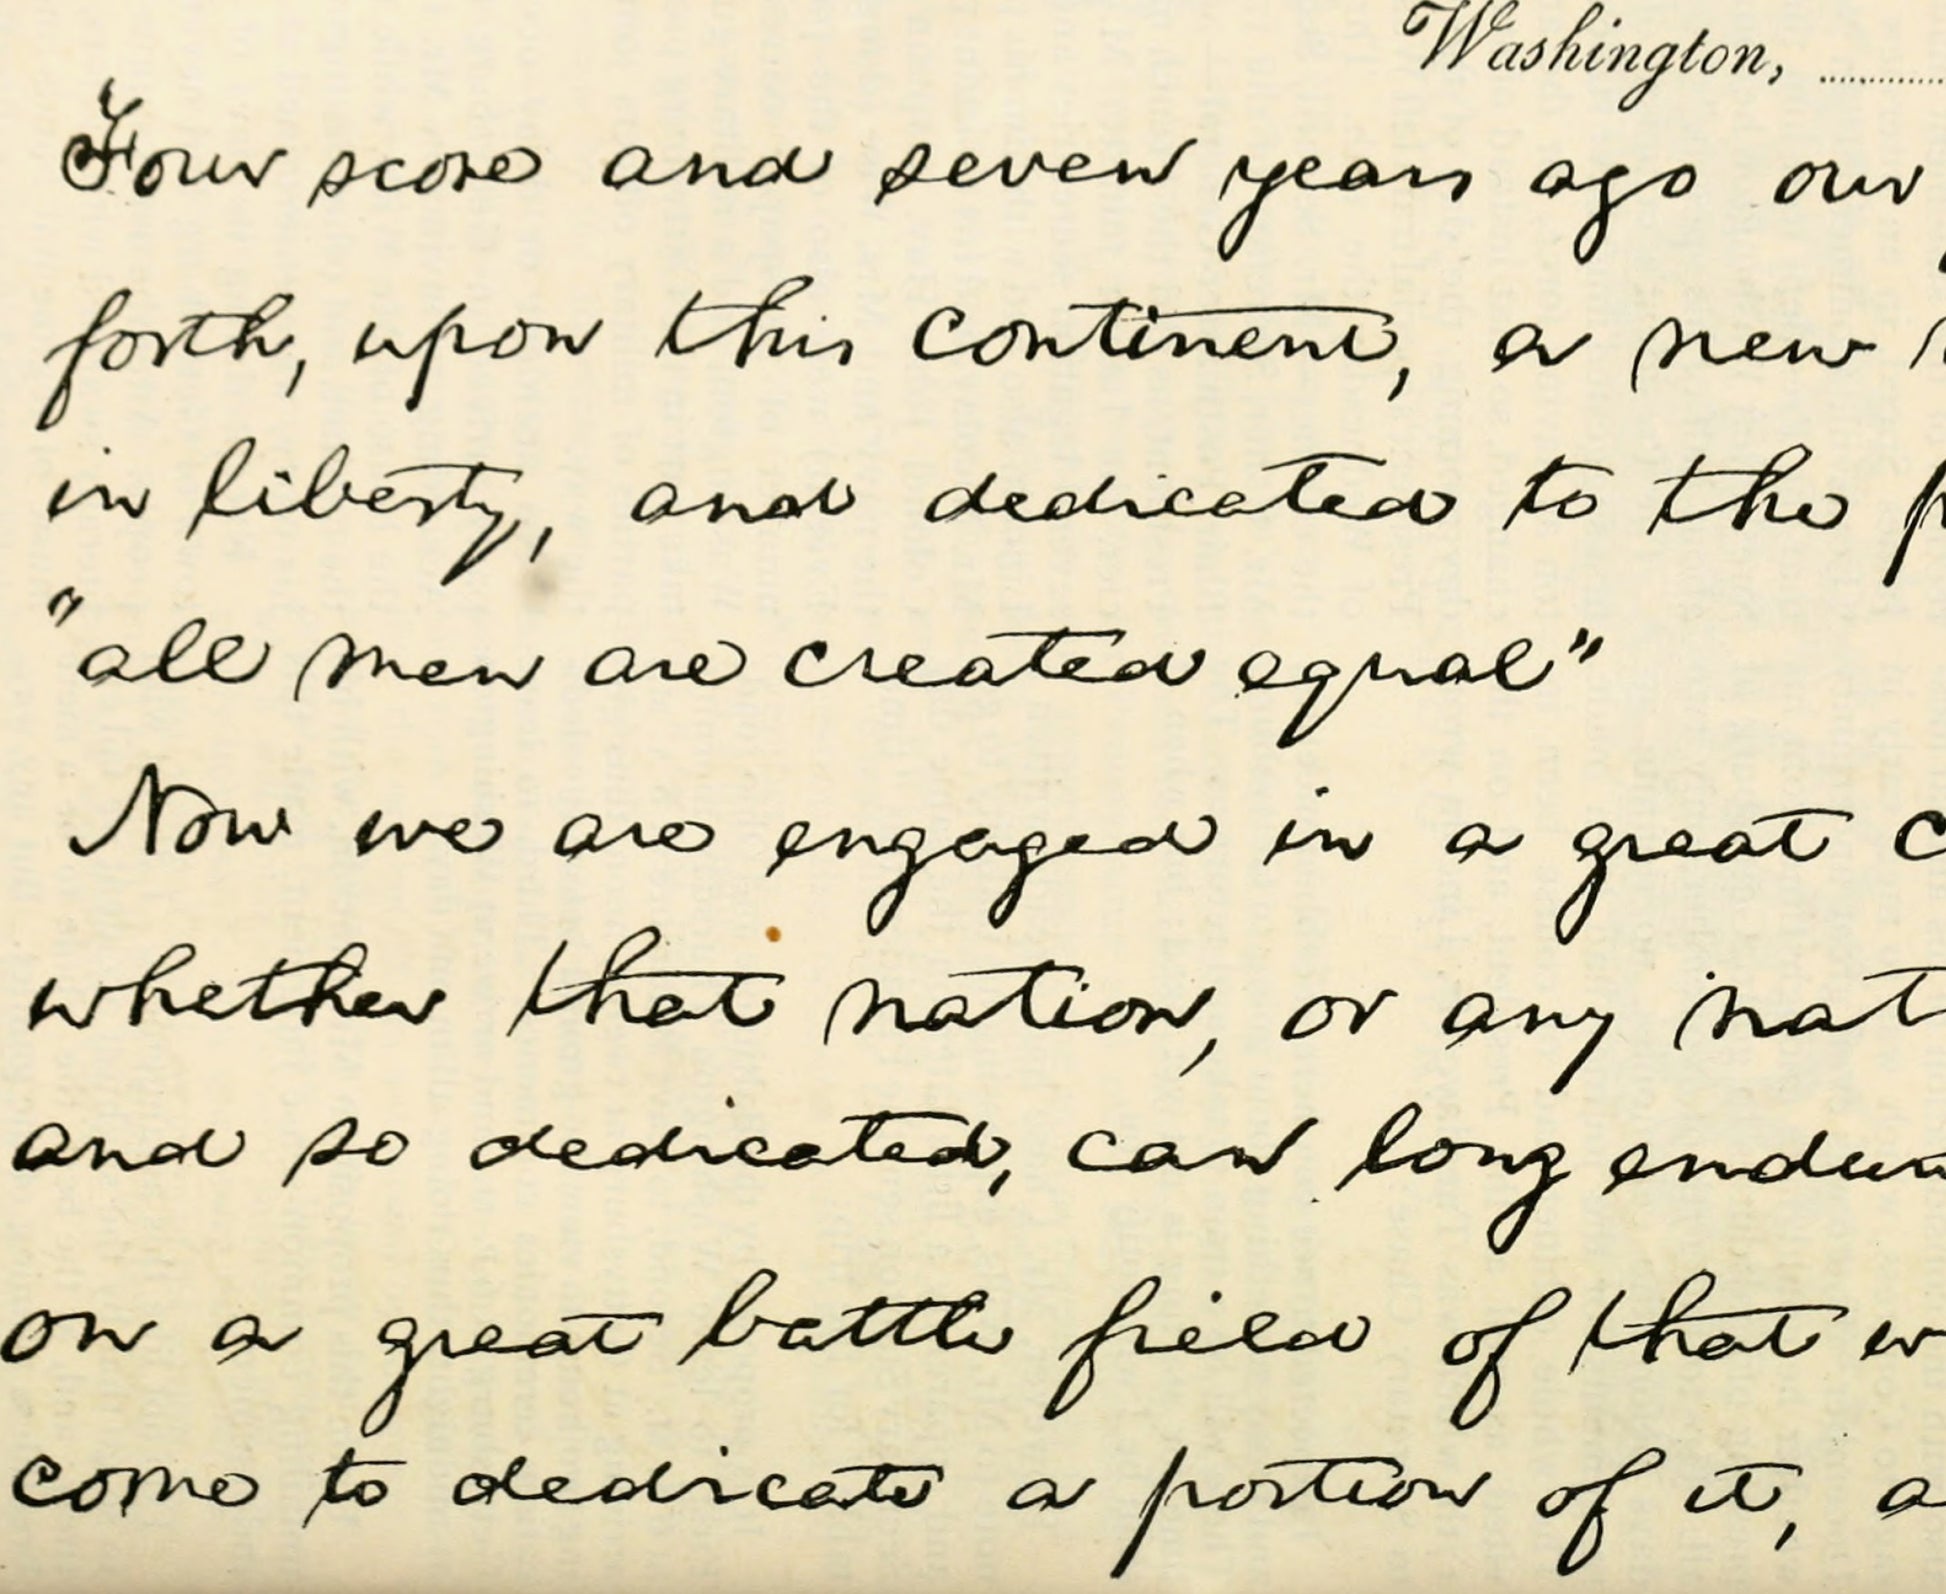 Washington,
Four score and seven years ago our
forth, upon this continent, a new
in liberty, and dedicated to the
"all men are created equal"
Now we are engaged in a great
whether that nation, or any nat
and so dedicated, can long endur
on a great battle field of that w
come to dedicate a portion of it, a